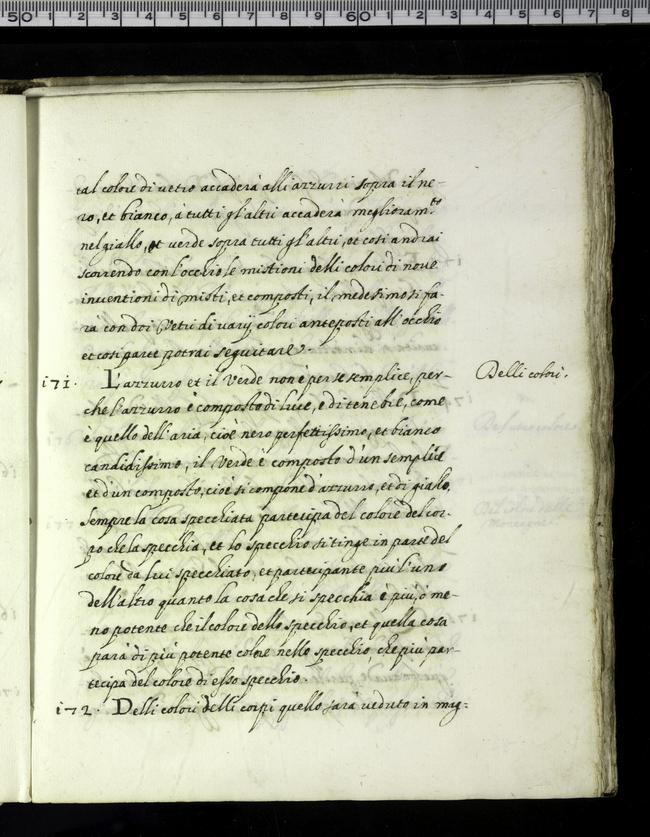 tal colore di vetro accaderà alli azzurri sopra il ne-
ro, et bianco, à tutti gl'altri accaderà miglioram.to
nel giallo, et verde sopra tutti gl'altri, et così andrai
scorrendo con l'occhio le mistioni delli colori di nove
inventioni di misti, et composti, il medesimo si fa-
ra con doi vetri di varij colori anteposti all'occhio
et così parte potrai seguitare.
171. L'azzurro et il verde non è per se semplice, per-
Delli colori.
che l'azzurro è composto di luce, e di tenebre, come
è quello dell'aria, cioè nero perfettissimo, et bianco
candidissimo, il verde è composto d'un semplice
et d'un composto, cioè si compone d'azzurro, et di giallo,
Sempre la cosa specchiata partecipa del colore del cor-
po che la specchia, et lo specchio si tinge in parte del
colore da lui specchiato, et partecipante più l'uno
dell'altro quanto la cosa che si specchia è più, ò me-
no potente che il colore dello specchio, et quella cosa
parà di più potente colore nello specchio, che più par-
tecipa del colore di esso specchio.
172. Delli colori delli corpi quello sarà veduto in mag-